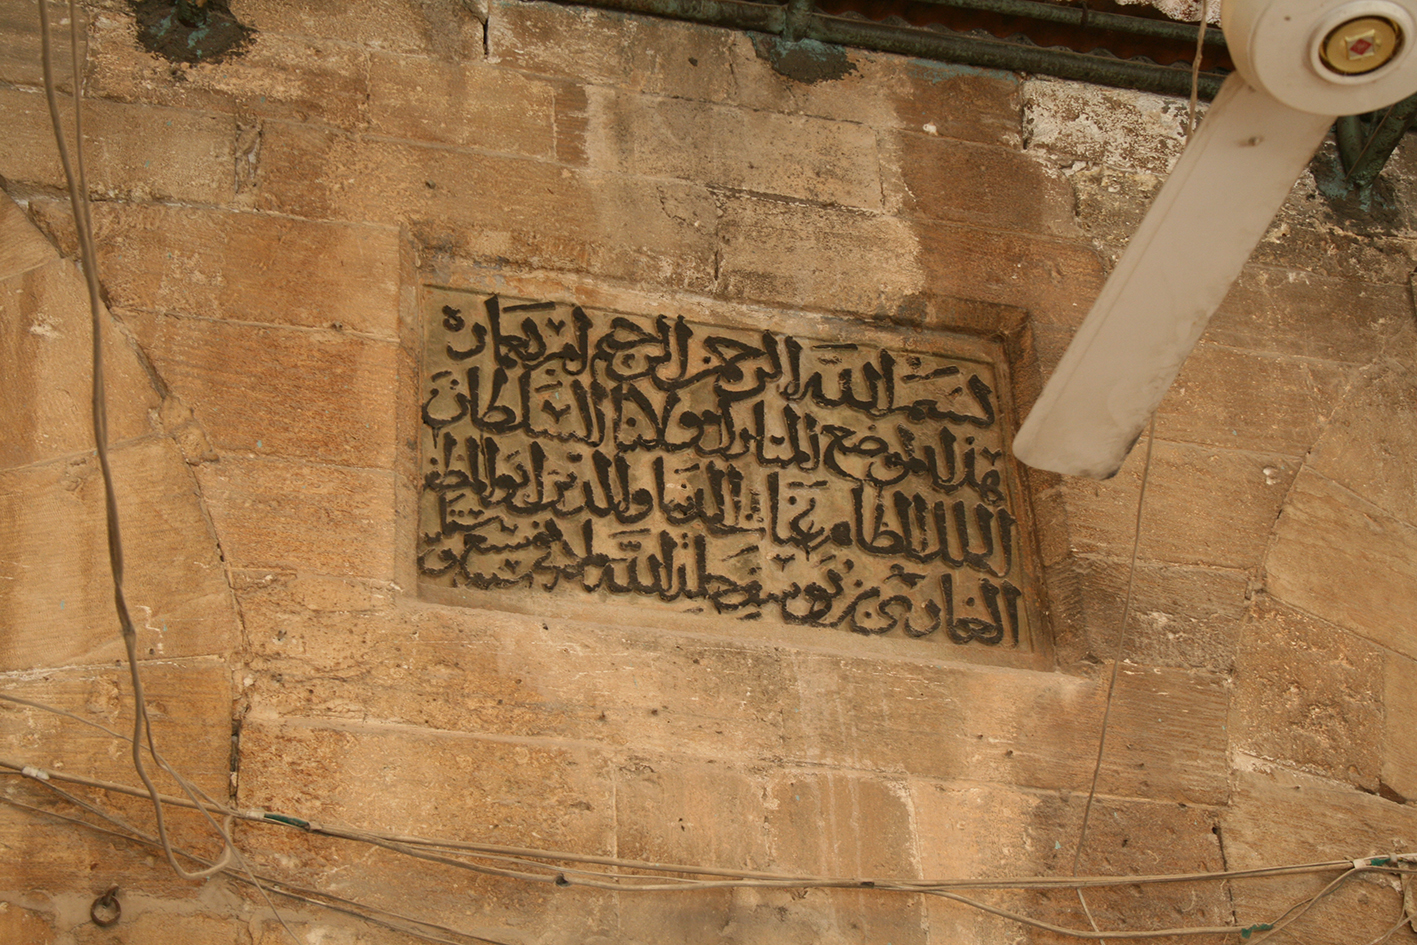 بسم الله الرحمن الرحيم امر بعمارة
هذا الموضع المبارك مولانا السلطان
الملك الظاهر غياث الدنيا والدين ابو المظفر
الغازى بن يوسف خلد الله ملكه